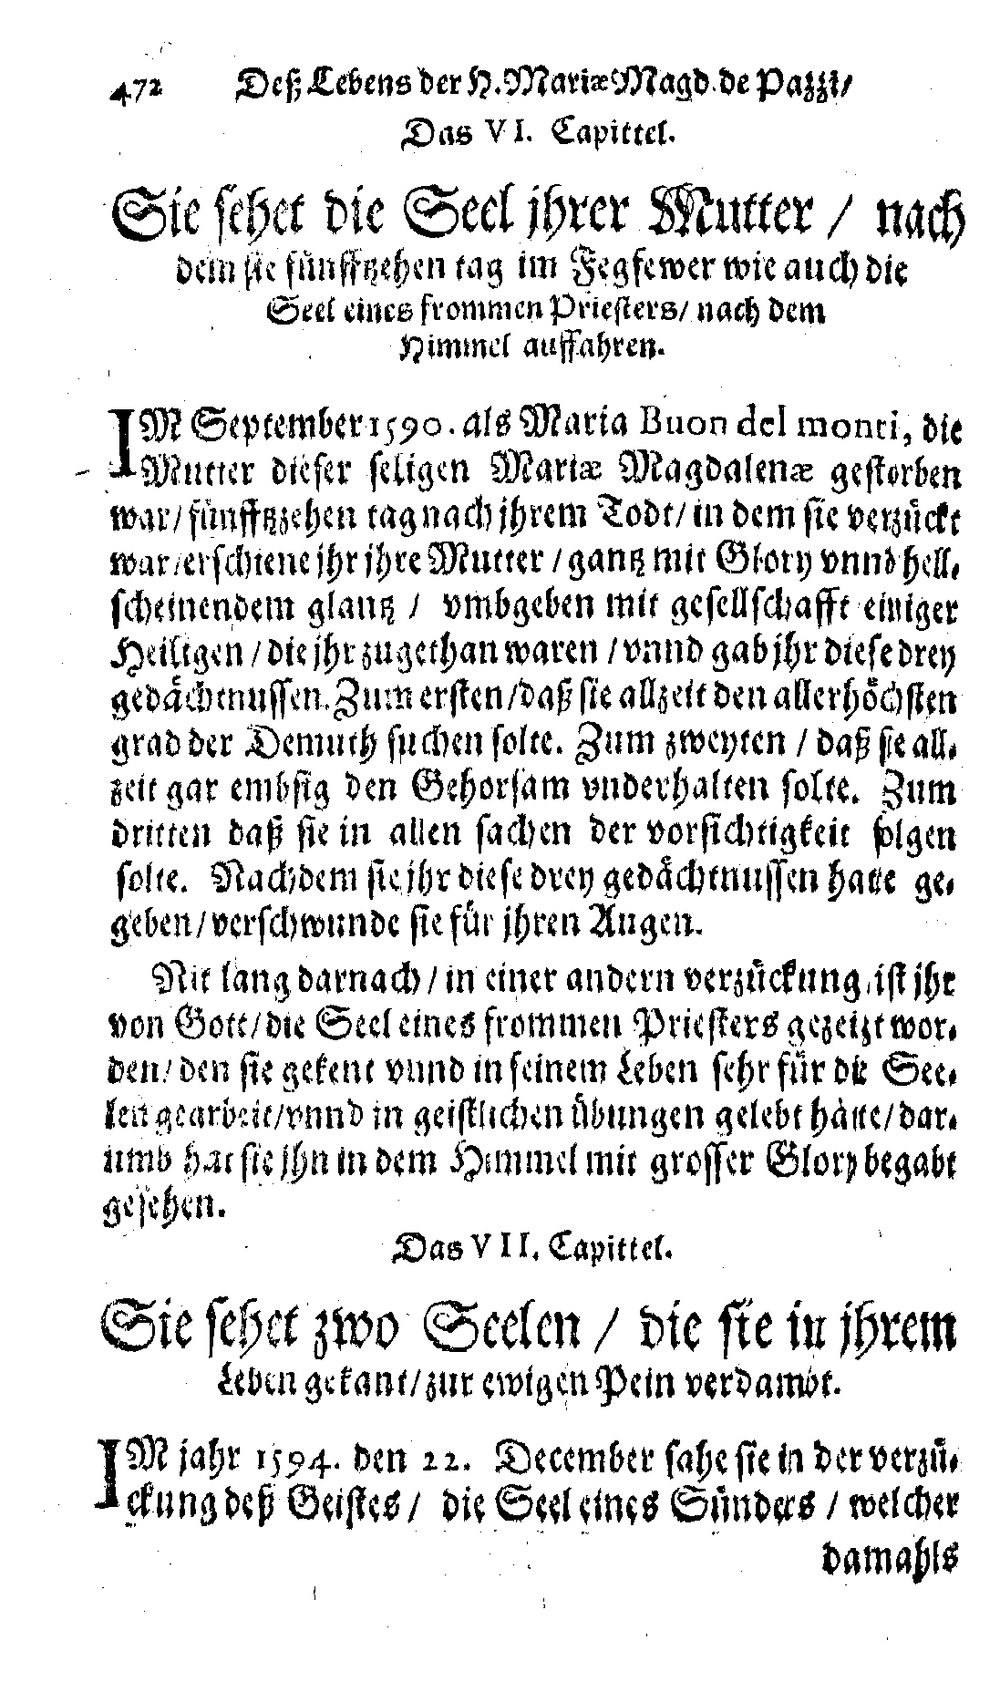 472 Deß Lebens der H. Mariæ Magd. de Pazzi/
Das VI. Capittel.
Sie sehet die Seel jhrer Mutter / nach
dem sie fünfftzehen tag im Fegfewer wie auch die
Seel eines frommen Priesters/ nach dem
Himmel auffahren.
IM September 1590. als Maria Buon del monti, die
Mutter dieser seligen Mariæ Magdalenæ gestorben
war/ fünfftzzehen tag nach jhrem Todt/ in dem sie verzückt
war/ erschiene jhr jhre Mutter / gantz mit Glory vnnd hell-
scheinendem glantz / vmbgeben mit gesellschafft einiger
Heiligen / die jhr zugethan waren / vnnd gab jhr diese drey
gedächtnussen. Zum ersten/daß sie allzeit den allerhöchsten
grad der Demuth suchen solte. Zum zweyten / daß sie all-
zeit gar embsig den Gehorsam vnderhalten solte. Zum
dritten daß sie in allen sachen der vorsichtigkeit folgen
solte. Nachdem sie jhr diese drey gedächtnussen hatte ge-
geben/ verschwunde sie für jhren Augen.
Nit lang darnach / in einer andern verzückung, ist jhr
von Gott/ die Seel eines frommen Priesters gezeigt wor-
den/ den sie gekent vnnd in seinem Leben sehr für die See-
len gearbeit/vnnd in geistlichen übungen gelebt hätte/ dar-
umb hat sie jhn in dem Himmel mit grosser Glory begabt
gesehen.
Das VII. Capittel.
Sie sehet zwo Seelen / die sie in jhrem
Leben gekant/ zur ewigen Pein verdambt.
IM jahr 1594. den 22. December sahe sie in der verzü-
ckung deß Geistes / die Seel eines Sünders / welcher
damahls